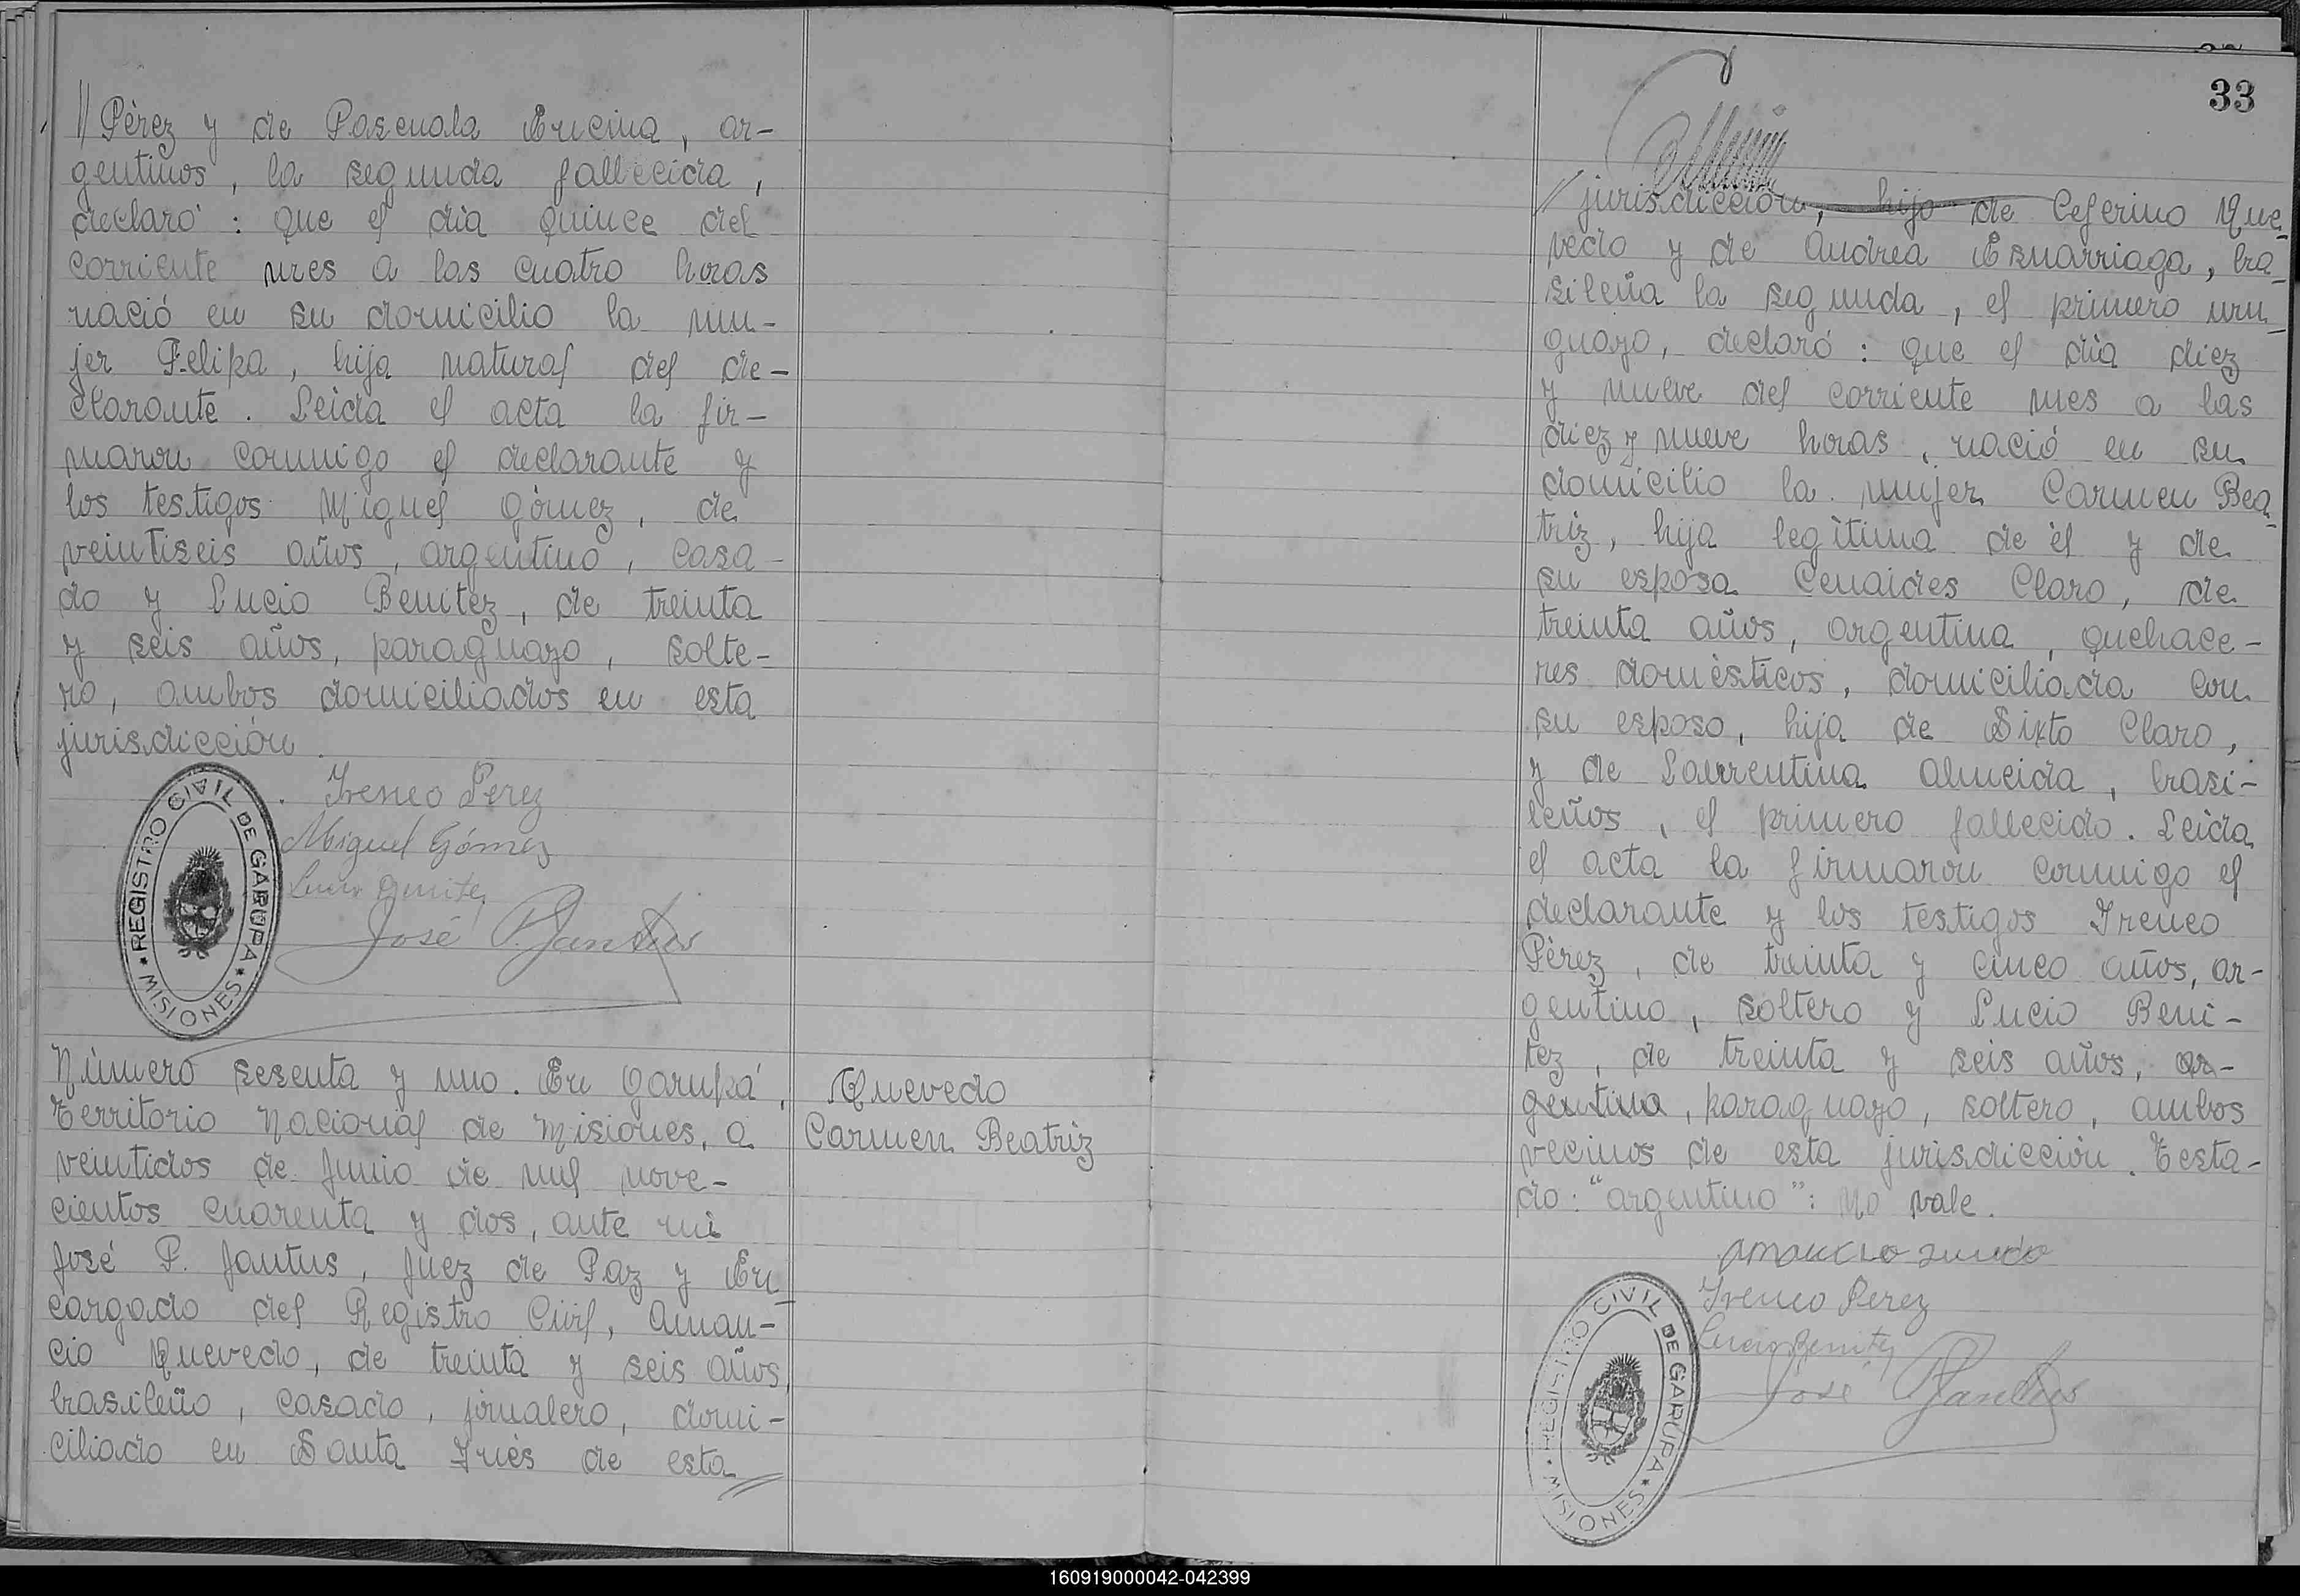 // Pérez y de Pascuala Encina, ar-
gentinos, la segunda fallecida,
declaró: Que el día quince del
corriente mes a las cuatro horas
nació en su domicilio la mu-
jer Felipa, hija natural del de-
clarante. Leída el acta la fir-
maron conmigo el declarante y
los testigos Miguel Gómez, de
veintiseis años, argentino, casa-
do y Lucio Benitez, de treinta
y seis años, paraguayo, solte-
ro, ambos domiciliados en esta
jurisdicción.
Ireneo Perez
Miguel Gómez
Lucio Benitez
José P. Jantus
REGISTRO CIVIL DE GARUPA
* MISIONES *
Número sesenta y uno. En Garupá,
Territorio Nacional de Misiones, a
veintidos de Junio de mil nove-
cientos cuarenta y dos, ante mí
José P. Jantus, Juez de Paz y En-
cargado del Registro Civil, Aman-
cio Quevedo, de treinta y seis años,
brasileño, casado, jornalero, domi-
ciliado en Santa Inés de esta //
Quevedo
Carmen Beatriz
33
// jurisdicción, hijo de Ceferino Que-
vedo y de Andrea Esnarriaga, bra-
sileña la segunda, el primero uru-
guayo, declaró: Que el día diez
y nueve del corriente mes a las
diez y nueve horas, nació en su
domicilio la mujer Carmen Bea-
triz, hija legítima de él y de
su esposa Cenaides Claro, de
treinta años, argentina, quehace-
res domésticos, domiciliada con
su esposo, hija de Sixto Claro,
y de Laurentina Almeida, brasi-
leños, el primero fallecido. Leída
el acta la firmaron conmigo el
declarante y los testigos Ireneo
Pérez, de treinta y cinco años, ar-
gentino, soltero y Lucio Beni-
tez, de treinta y seis años, ar-
gentino, paraguayo, soltero, ambos
vecinos de esta jurisdicción. Testa-
do: "argentino": No vale.
Ireneo Perez
Lucio Benitez
José P. Jantus
REGISTRO CIVIL DE GARUPA
* MISIONES *
160919000042-042399